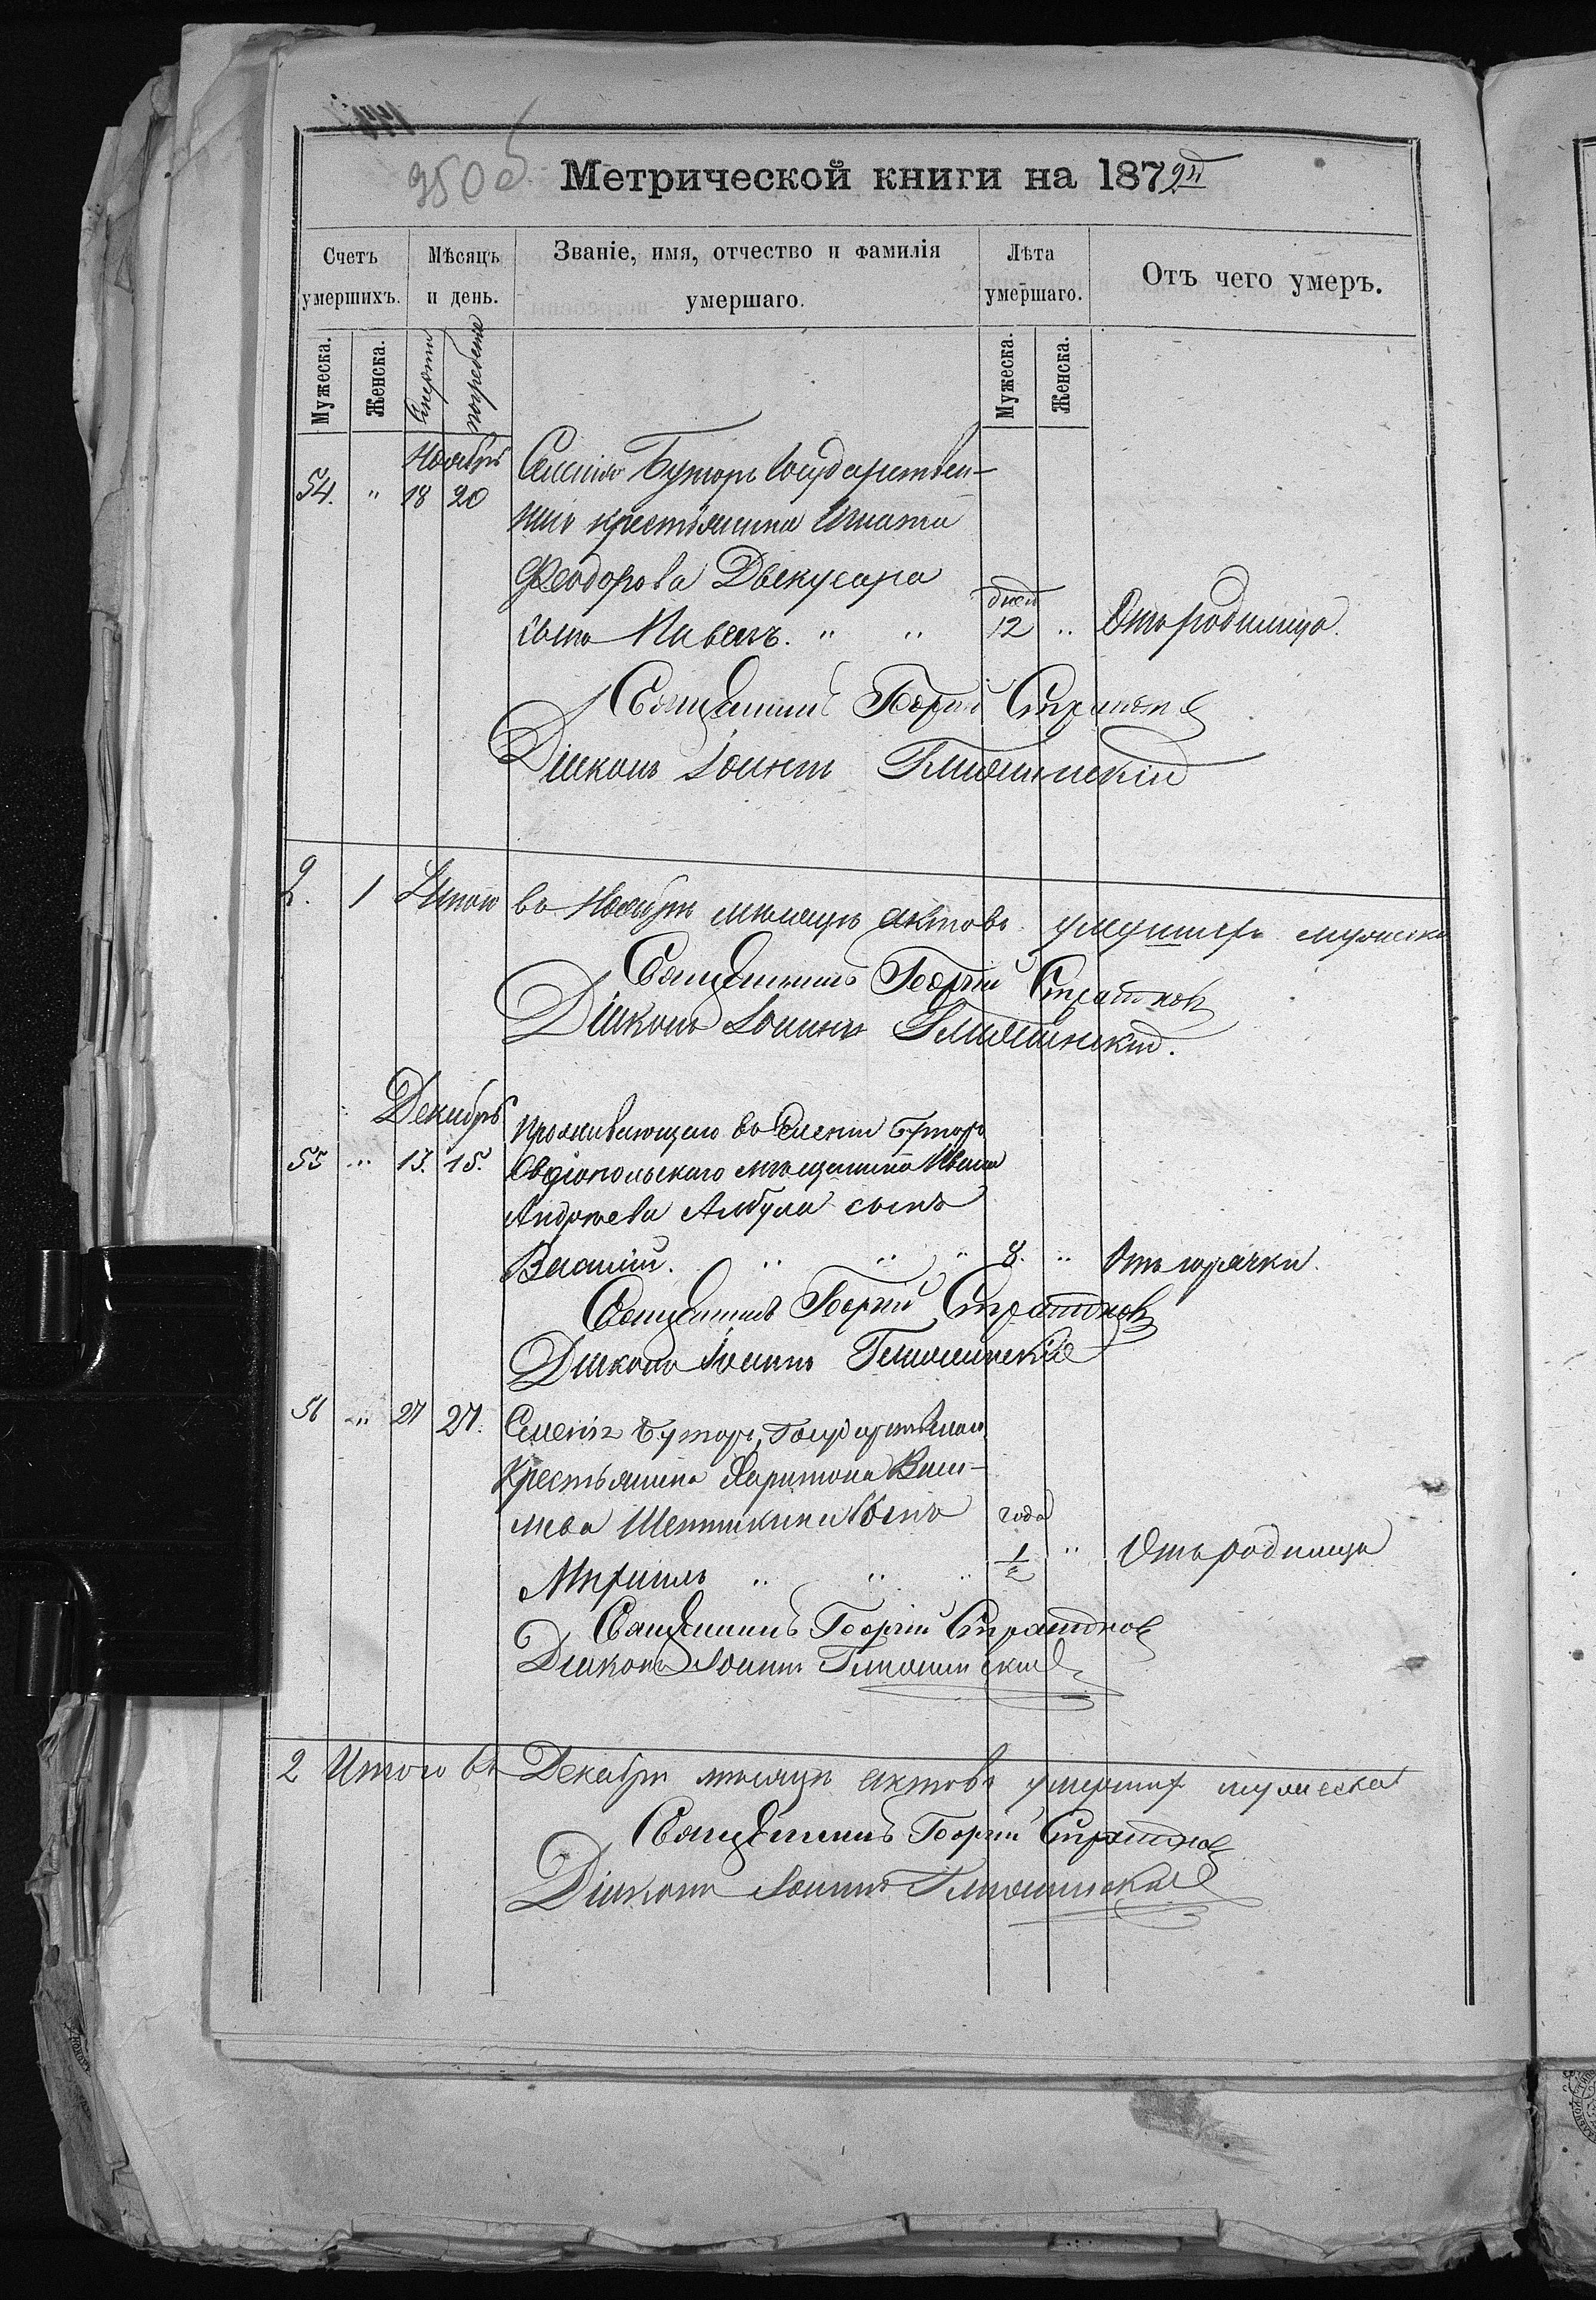 350 об
Метрической книги на 1872й
Счетъ умершихъ.
Мѣсяцъ и день.
Званіе, имя, отчество и фамилія умершаго.
Лѣта умершаго.
Отъ чего умеръ.
Мужеска.
Женска.
Смерти
погребенія
Мужеска.
Женска.
Ноябрь
54. " 18 20 Селенія Буторъ Государствен-
наго крестьянина Игната
Феодорова
дней
сынъ Павелъ. " " 12 " Отъ родимца.
Священникъ Георгій Стратонов
Діаконъ Іоаннъ
2. 1 Итого въ Ноябрѣ мѣсяцѣ актовъ умерших мужеска
Священникъ Георгій Стратонов
Діаконъ Іоаннъ
Декабрь
Проживающаго въ Селеніи Буторъ
55 " 13. 15. Овидіопольскаго мѣщанина Ивана
Андреева Албула сынъ
Василій. " " " 8. " Отъ горячки.
Священникъ Георгій Стратонов
Діаконъ Іоаннъ
56 " 27 27. Селенія Буторъ, Государственнаго
Крестьянина Харитона Васи-
льева сынъ
года
" " " 1/2 " Отъ родимца
Священникъ Георгій Стратонов
Діаконъ Іоаннъ
2 Итого въ Декабрѣ мѣсяцѣ актовъ умерших мужеска
Священникъ Георгій Стратонов
Діаконъ Іоаннъ